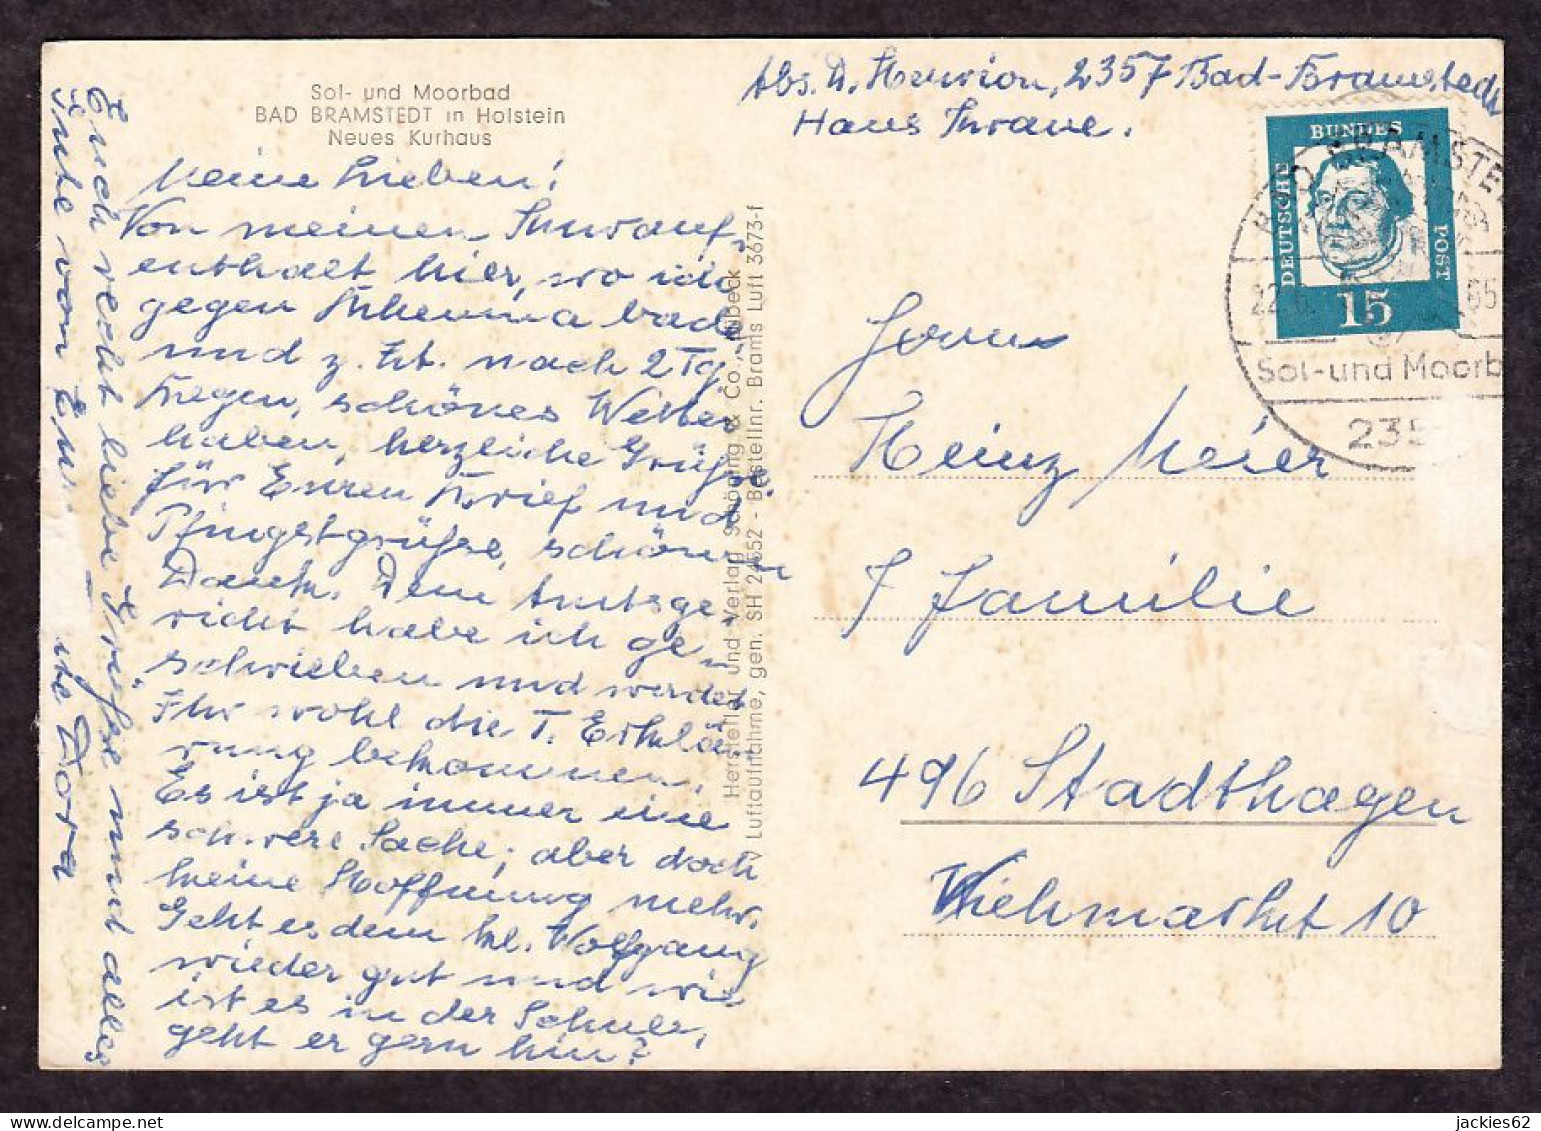 Sol- und Moorbad
BAD BRAMSTEDT in Holstein
Neues Kurhaus
Abs. D. 2357 Bad-Bramstedt
Haus
Meine Lieben!
Von meinem Kurauf-
enthalt hier, wo ich
gegen Rheuma bade
und z. Zt. nach 2 Tg.
Regen, schönes Wetter
haben, herzliche Grüße
für Euren Brief und
Pfingstgrüße, schönen
Dank. Dem Amtsge-
richt habe ich ge-
schrieben und werdet
Ihr wohl die T. Erklä-
rung bekommen.
Es ist ja immer eine
schwere Sache, aber doch
keine Hoffnung mehr.
Geht es dem kl. Wolfgang
wieder gut und wie
ist es in der Schule,
geht er gern hin?
Euch recht liebe Grüße und alles
Gute von Eurer Dora
Hersteller und Verlag Schöning & Co., Lübeck
Luftaufnahme, gen. SH 24552 - Bestellnr. Brams Luft 3673-f
DEUTSCHE
BUNDES
POST
15
BAD BRAMSTE
22.6. 65
Sol- und Moorb
235
Herrn
Heinz Meier
Familie
496 Stadthagen
Viehmarkt 10
jackies62